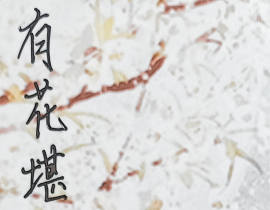 有花堪